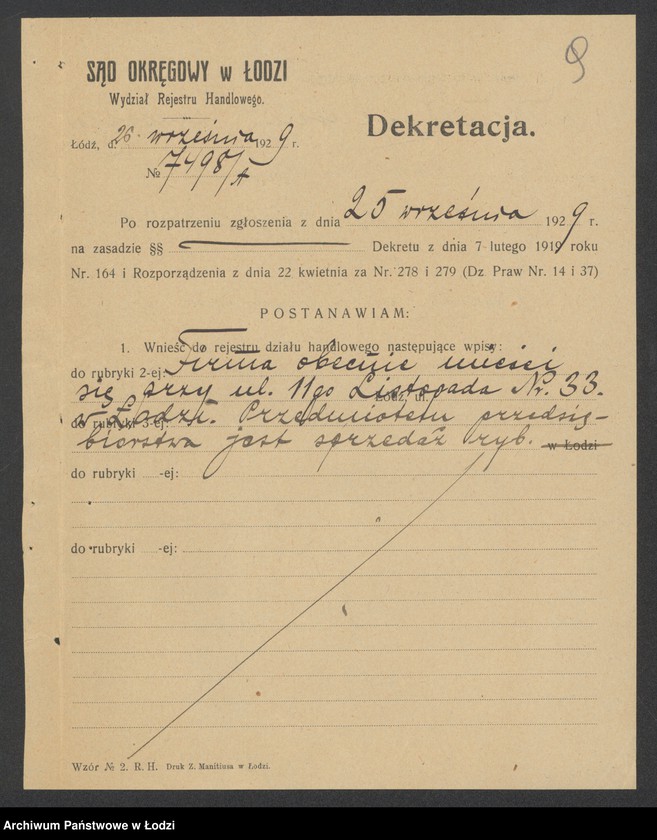 9
SĄD OKRĘGOWY w ŁODZI
Wydział Rejestru Handlowego.
Dekretacja.
Łódź, d. 26 września 1929 r.
№ 7498/A
Po rozpatrzeniu zgłoszenia z dnia 25 września 1929 r.
na zasadzie §§ Dekretu z dnia 7 lutego 1919 roku
Nr. 164 i Rozporządzenia z dnia 22 kwietnia za Nr. 278 i 279 (Dz. Praw Nr. 14 i 37)
POSTANAWIAM:
1. Wnieść do rejestru działu handlowego następujące wpisy:
do rubryki 2-ej: Firma obecnie mieści
się przy ul. 11go Listopada Nr. 33.
Łódź, ul.
w Łodzi. Przedmiotem przedsię-
do rubryki 3-ej:
bierstwa jest sprzedaż ryb. w Łodzi
do rubryki -ej:
do rubryki -ej:
Wzór № 2. R. H. Druk Z. Manitiusa w Łodzi.
Archiwum Państwowe w Łodzi